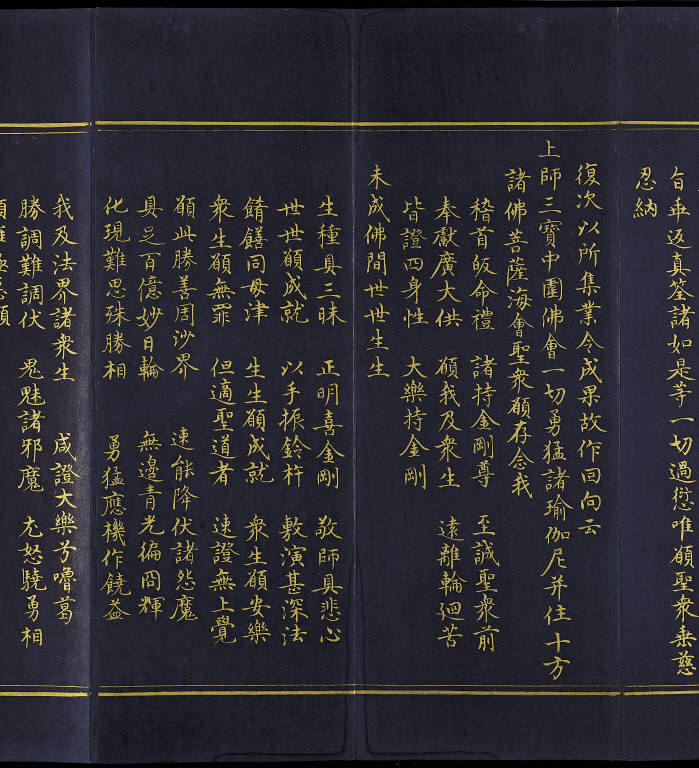 旨垂返真筌諸如是等一切過愆唯願聖衆垂慈
忍納
復次以所集業令成果故作回向云
上師三寶中圍佛會一切勇猛諸瑜伽尼并住十方
諸佛菩薩海會聖衆願存念我
稽首皈命禮 諸持金剛尊 至誠聖衆前
奉獻廣大供 願我及衆生 遠離輪迴苦
皆證四身性 大樂持金剛
未成佛間世世生生
生種具三昧 正明喜金剛 敬師具悲心
世世願成就 以手振鈴杵 敷演甚深法
餚饍同毋津 生生願成就 衆生願安樂
衆生願無罪 但適聖道者 速證無上覺
願此勝善周沙界 速能降伏諸怨魔
具足百億妙日輪 無邊青光徧囧輝
化現難思殊勝相 勇猛應機作饒益
我及法界諸衆生 咸證大樂兮嚕葛
勝調難調伏 鬼魅諸邪魔 尤怒驍勇相